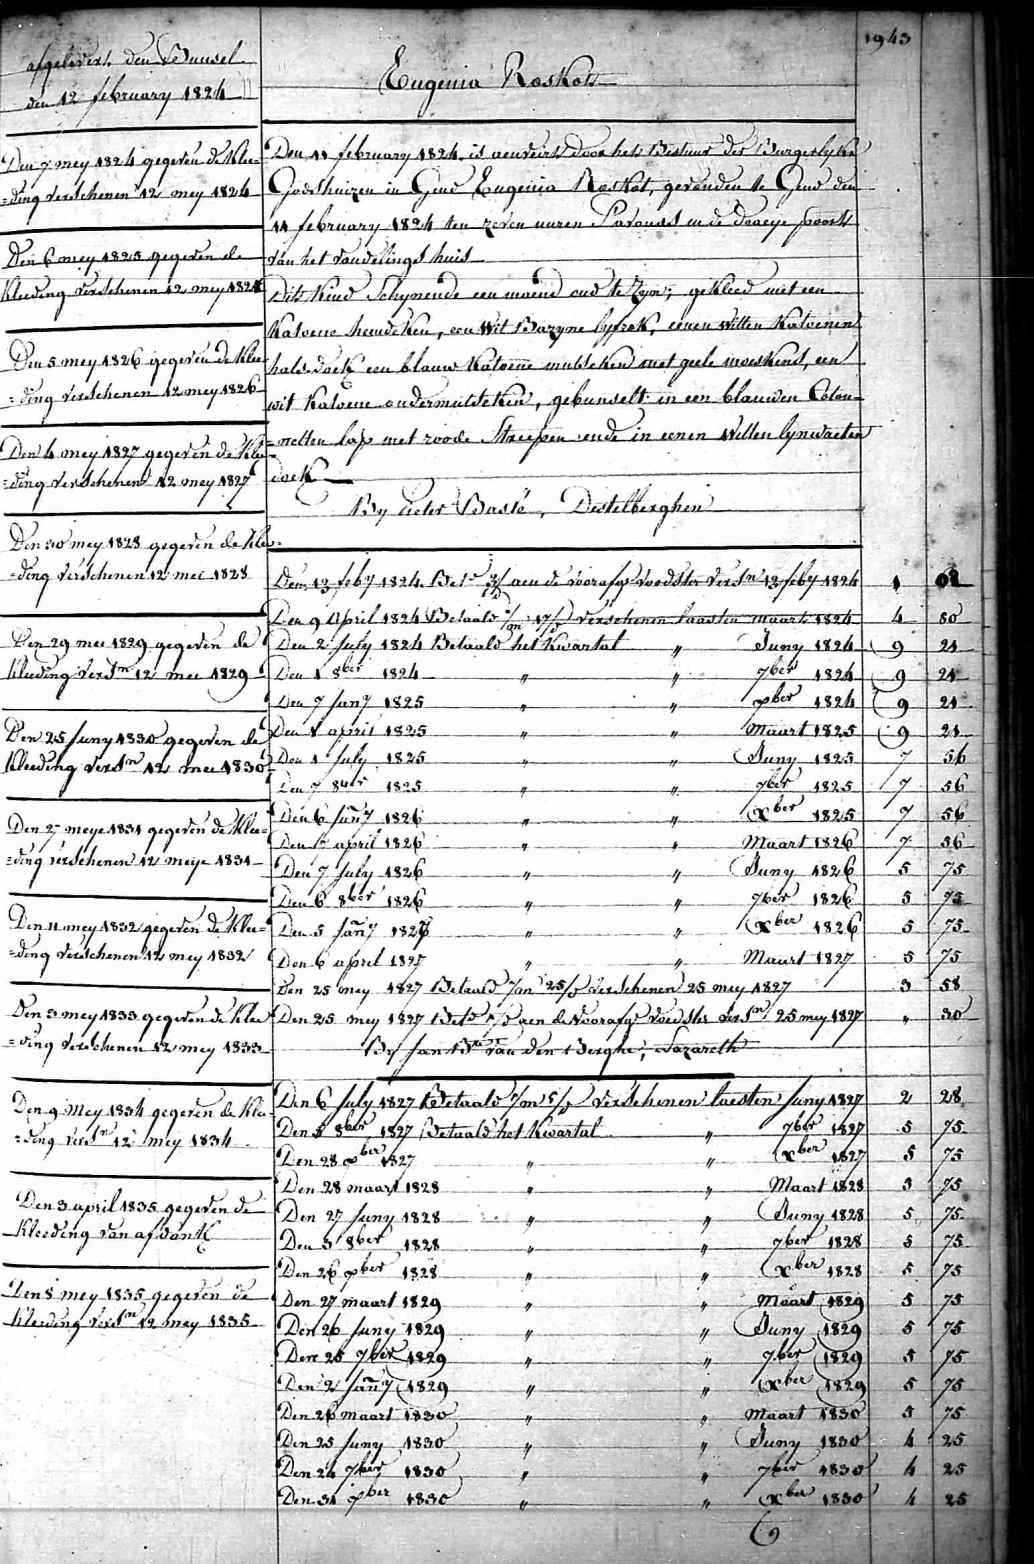 1943
afgelevert den Bunsel
den 12 february 1824
Eugenia Roskot
Den 7 mey 1824 gegeven de klee=
=ding verschenen 12 mey 1824
Den 6 mey 1825 gegeven de
kleeding verschenen 12 mey 1825
Den 5 mey 1826 gegeven de klee=
=ding verschenen 12 mey 1826
Den 4 mey 1827 gegeven de klee=
=ding verschenen 12 mey 1827
Den 30 mey 1828 gegeven de klee=
=ding verschenen 12 mei 1828
Den 29 mei 1829 gegeven de
kleeding versn 12 mei 1829
Den 25 Juny 1830 gegeven de
kleeding versn 12 mei 1830
Den 27 meye 1831 gegeven de klee=
=ding verschenen 12 meije 1831
Den 11 mey 1832 gegeven de klee=
=ding verschenen 12 mey 1832
Den 3 mey 1833 gegeven de klee
=ding verschenen 12 mey 1833
Den 9 mey 1834 gegeven de klee
=ding versn 12 mey 1834
Den 3 april 1835 gegeven de
kleeding van afdank
Den 8 mey 1835 gegeven de
kleeding versn 12 mey 1835
Den 11 february 1824 is aenveirt door het Bestuur der Burgerlyke
Godshuizen in Gend Eugenia Roskot, gevonden te Gend den
11 february 1824 ten zeven uuren S'avonds in de draeye poort
van het vondelings huis
Dit kind Schynende een maend oud te zyn, gekleed met een
katoene hemdeken, een wit Bazyne lyfrok, eenen witten katoenen
halsdoek een blauw katoene mutseken met geele moeskens, een
wit katoene ondermutseken, gebunselt in een blauwen Colon=
=netten lap met roode Streepen ende in eenen witten lynwaeten
doek
By Pieter Basté, Destelberghen
Den 13 feby 1824 Bet aen de voorafge voedster versn 13 feby 1824 1 02
Den 9 April 1824 Betaald 1/m 17/d verschenen laasten maart 1824 4 80
Den 2 July 1824 Betaald het kwartal " Juny 1824 9 21
Den 1 8ber 1824 " " 7ber 1824 9 21
Den 7 Jany 1825 " " xber 1824 9 21
Den 1 april 1825 " " Maart 1825 9 21
Den 1 July 1825 " " Juny 1825 7 56
Den 7 8ber 1825 " " 7ber 1825 7 56
Den 6 Jany 1826 " " xber 1825 7 56
Den 7 april 1826 " " Maart 1826 7 56
Den 7 July 1826 " " Juny 1826 5 75
Den 6 8ber 1826 " " 7ber 1826 5 75
Den 5 Jany 1827 " " xber 1826 5 75
Den 6 april 1827 " " Maart 1827 5 75
Den 25 mey 1827 Betaald 1/m 25/d verschenen 25 mey 1827 3 58
Den 25 mey 1827 Bet aen de voorafge voedster versn 25 mey 1827 " 30
By Jan Bte van den Berghe, Nazareth
Den 6 July 1827 Betaald 1/m 5/d verschenen laesten Juny 1827 2 28
Den 5 8ber 1827 Betaald het kwartal " 7ber 1827 5 75
Den 28 xber 1827 " " xber 1827 5 75
Den 28 maart 1828 " " Maart 1828 5 75
Den 27 Juny 1828 " " Juny 1828 5 75
Den 3 8ber 1828 " " 7ber 1828 5 75
Den 26 xber 1828 " " xber 1828 5 75
Den 27 maart 1829 " " Maart 1829 5 75
Den 26 Juny 1829 " " Juny 1829 5 75
Den 25 7ber 1829 " " 7ber 1829 5 75
Den 2 Jany 1829 " " xber 1829 5 75
Den 26 maart 1830 " " Maart 1830 5 75
Den 25 Juny 1830 " " Juny 1830 4 25
Den 24 7ber 1830 " " 7ber 1830 4 25
Den 31 xber 1830 " " xber 1830 4 25